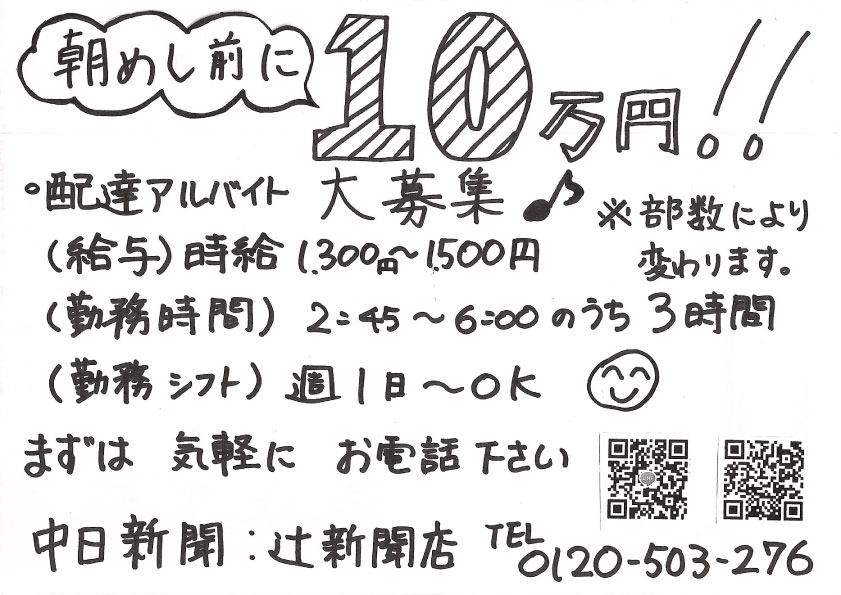 朝めし前に
10万円!!
○配達アルバイト 大募集♪
※部数により
変わります。
(給与) 時給 1,300円〜1,500円
(勤務時間) 2:45〜6:00のうち 3時間
(勤務シフト) 週1日〜OK
まずは 気軽に お電話下さい
中日新聞:辻新聞店 TEL 0120-503-276